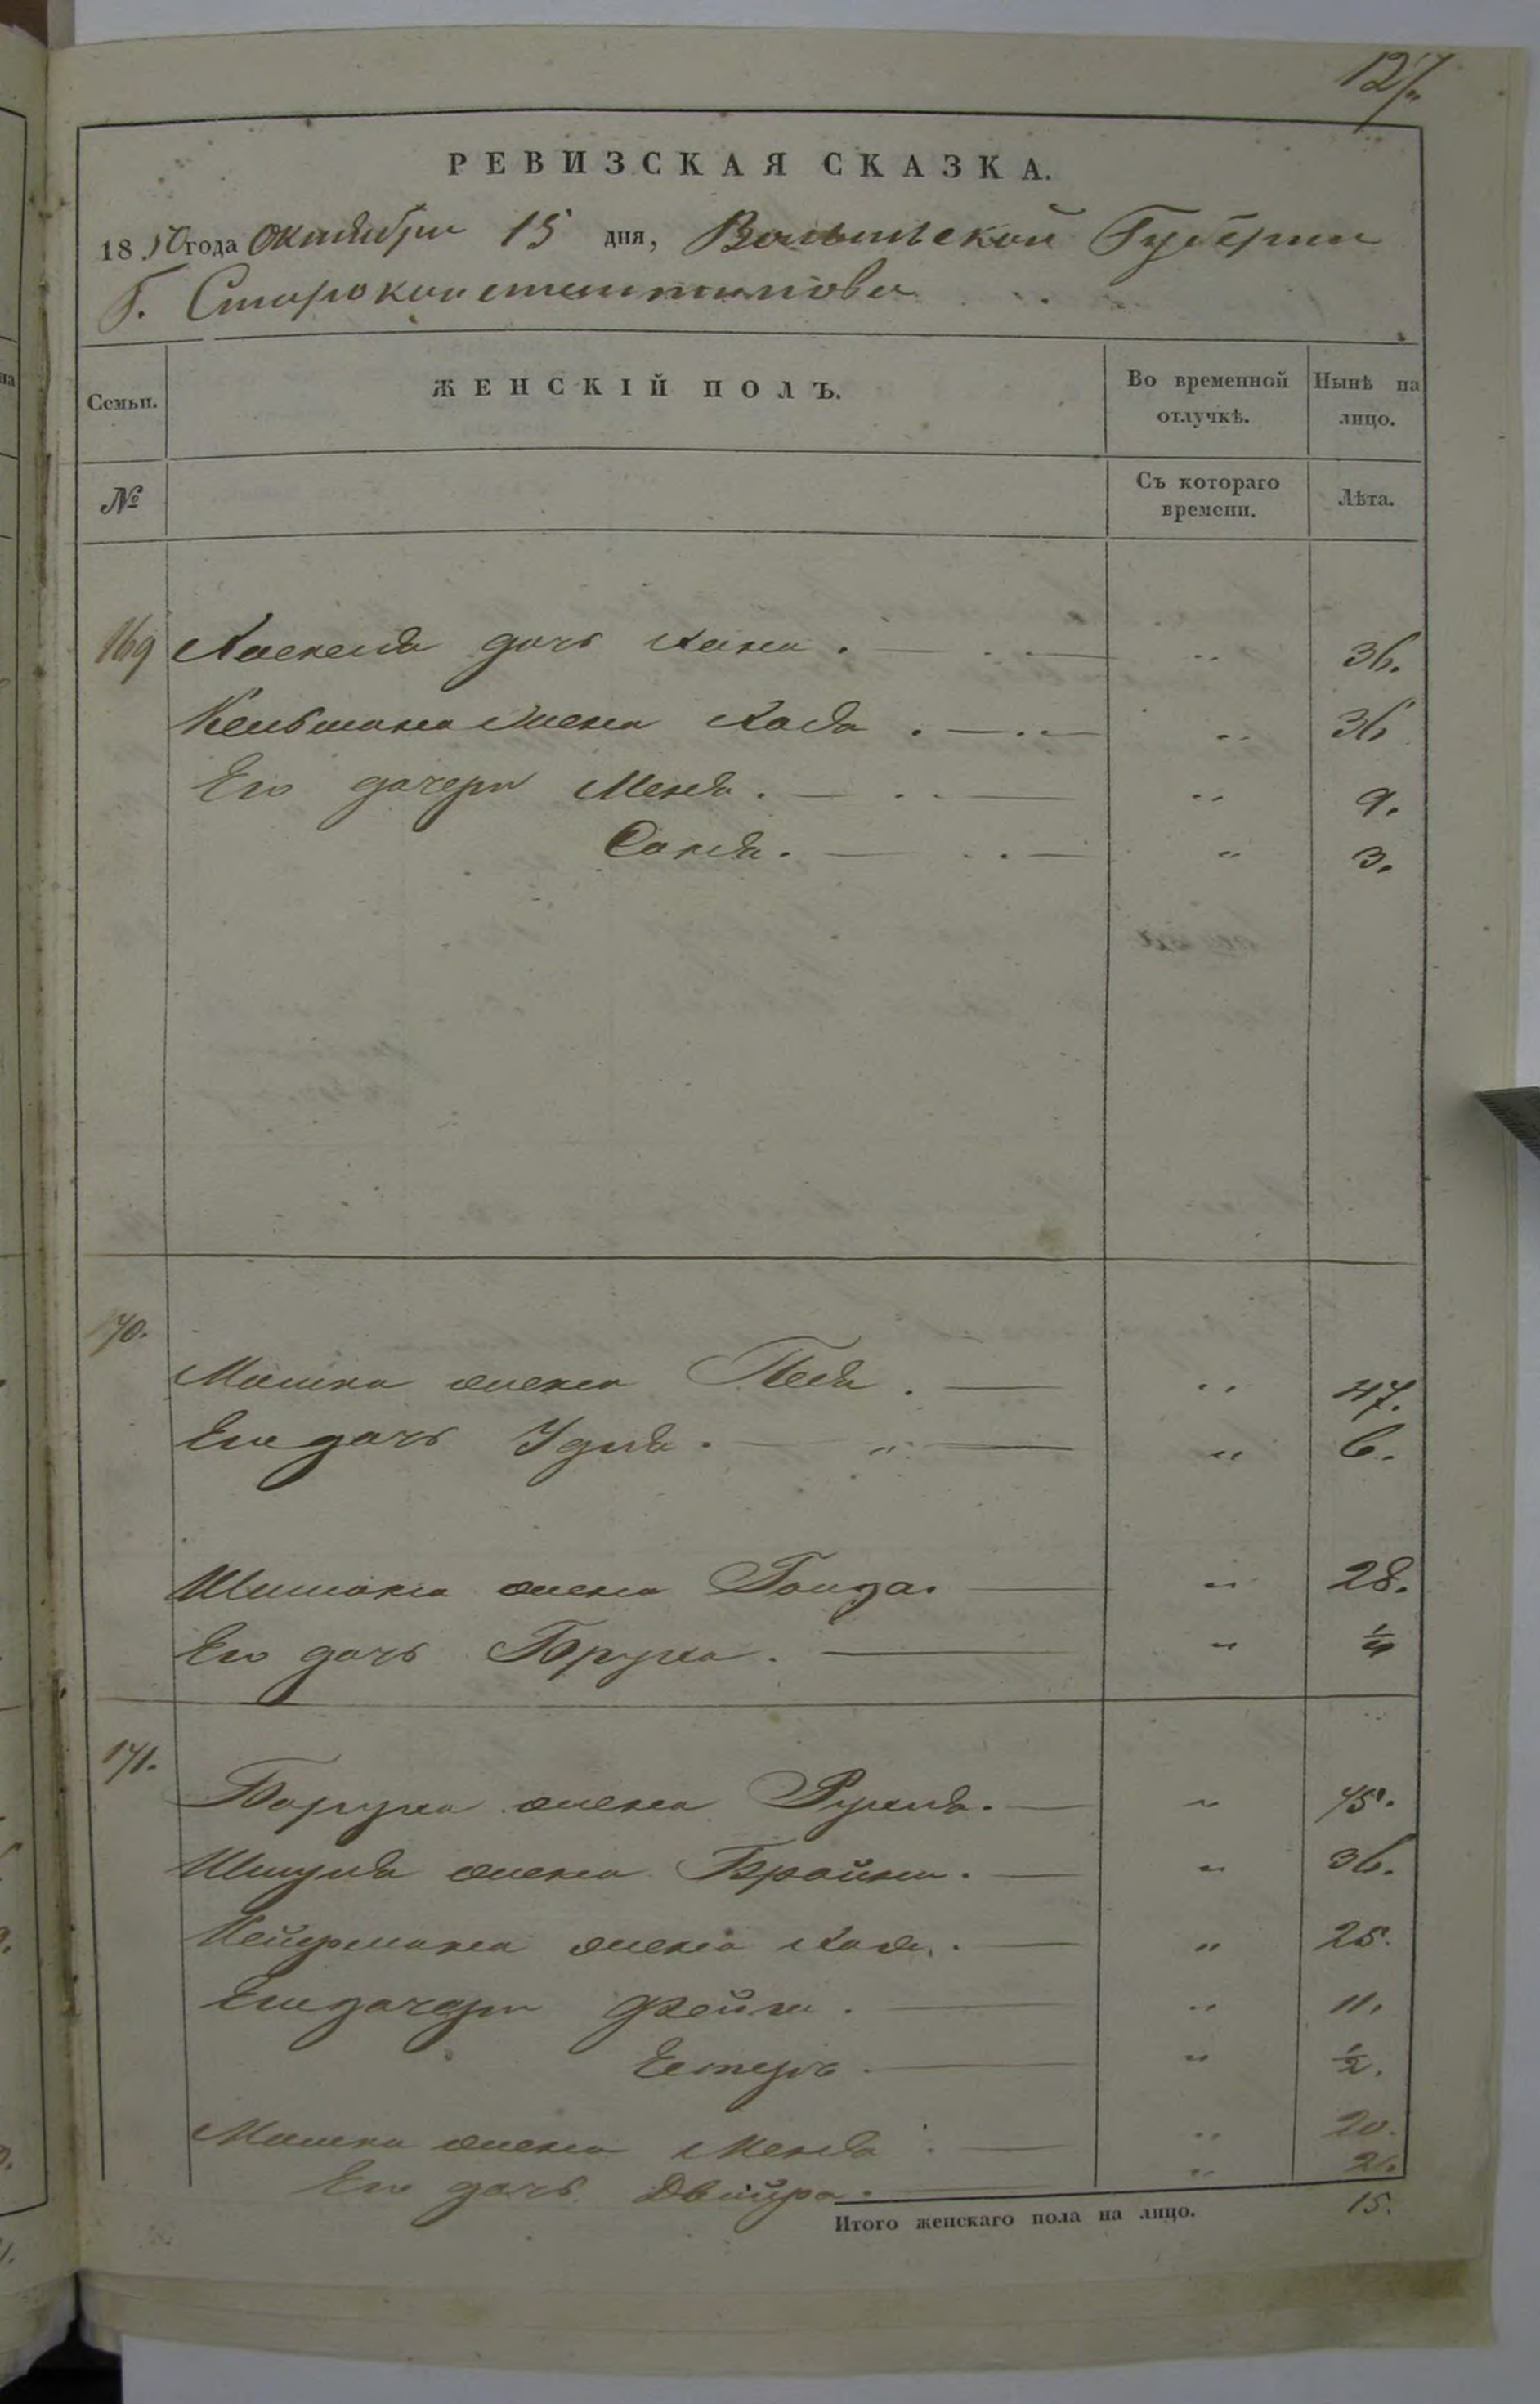 127
РЕВИЗСКАЯ СКАЗКА.
1850 года Октября 15 дня, Волынской Губернии
Г. Староконстантинова
Семьи.
ЖЕНСКІЙ ПОЛЪ.
Во временной отлучкѣ.
Нынѣ на лицо.
№
Съ котораго времени.
Лѣта.
169 дочь Хана . — „ 36.
жена Хая . — „ 36
Его дочери Меня . — „ 9.
Сося . — „ 3.
170.
Мошка жена Песя . — „ 47.
Его дочь Удля . — „ 6.
Шимона жена Голда . — „ 28.
Его дочь Бруха . — „ ¼
171.
Боруха жена Рухля . — „ 45.
Шмуля жена Брайна . — „ 36.
жена Хая . — „ 25.
Его дочери Фейга . — „ 11.
Естерь . — „ ½.
Мошка жена „ 20.
Его дочь Двойра . — „ 2.
Итого женскаго пола на лицо. 15.